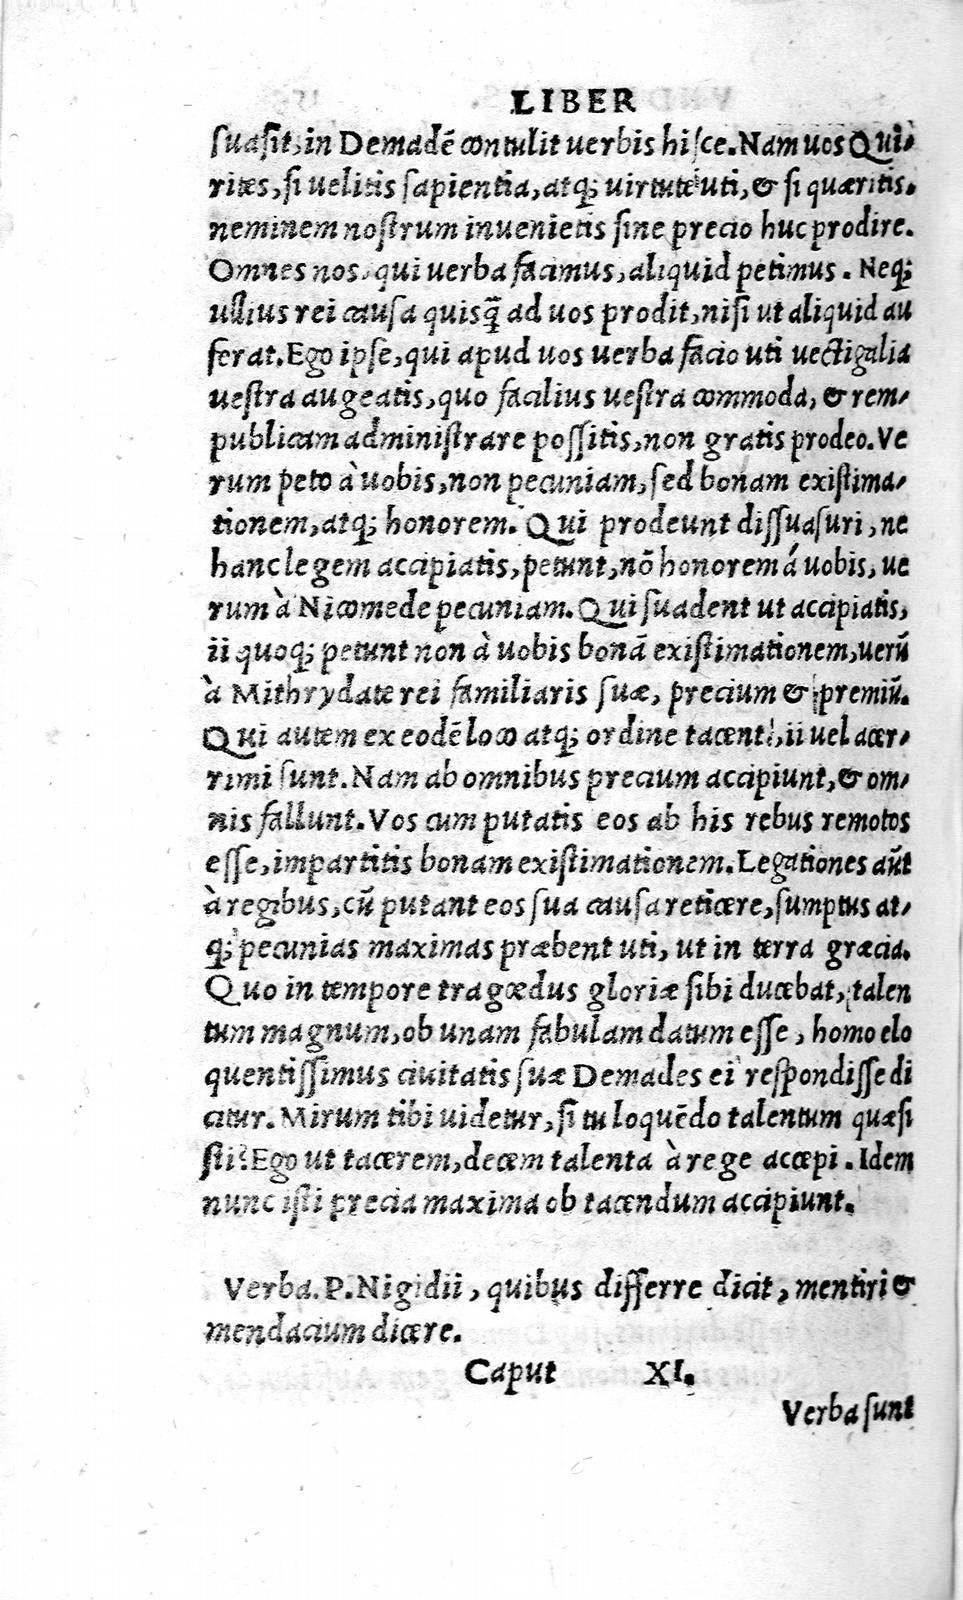 LIBER
suasit, in Demadē contulit uerbis hisce. Nam uos Qui-
rites, si uelitis sapientia, atq; uirtute uti, & si quæritis.
neminem nostrum inuenietis sine precio huc prodire.
Omnes nos, qui uerba facimus, aliquid petimus. Neq;
ullius rei causa quisq̃ ad uos prodit, nisi ut aliquid au
ferat. Ego ipse, qui apud uos uerba facio uti uectigalia
uestra augeatis, quo facilius uestra commoda, & rem-
publicam administrare possitis, non gratis prodeo. Ve
rum peto à uobis, non pecuniam, sed bonam existima-
tionem, atq; honorem. Qui prodeunt dissuasuri, ne
hanc legem accipiatis, petunt, nō honorem á uobis, ue
rum à Nicomede pecuniam. Qui suadent ut accipiatis,
ii quoq; petunt non à uobis bonā existimationem, uerũ
à Mithrydate rei familiaris suæ, precium & premiũ.
Qui autem ex eodē loco atq; ordine tacent, ii uel acer-
rimi sunt. Nam ab omnibus precium accipiunt, & om-
nis fallunt. Vos cum putatis eos ab his rebus remotos
esse, impartitis bonam existimationem. Legationes aũt
à regibus, cũ putant eos sua causa reticere, sumptus at-
q; pecunias maximas præbent uti, ut in terra græcia.
Quo in tempore tragœdus gloriæ sibi ducebat, talen
tum magnum, ob unam fabulam datum esse, homo elo
quentissimus ciuitatis suæ Demades ei respondisse di
citur. Mirum tibi uidetur, si tu loquēdo talentum quæsi
sti? Ego ut tacerem, decem talenta à rege accepi. Idem
nunc isti precia maxima ob tacendum accipiunt.
Verba. P. Nigidii, quibus differre dicit, mentiri &
mendacium dicere.
Caput XI.
Verba sunt